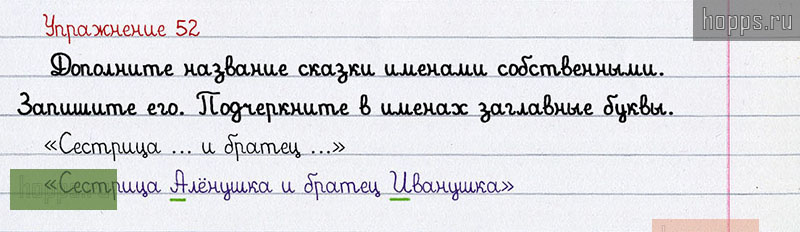 hopps.ru
Упражнение 52
Дополните название сказки именами собственными.
Запишите его. Подчеркните в именах заглавные буквы.
«Сестрица ... и братец ...»
«Сестрица Алёнушка и братец Иванушка»
hopps.ru